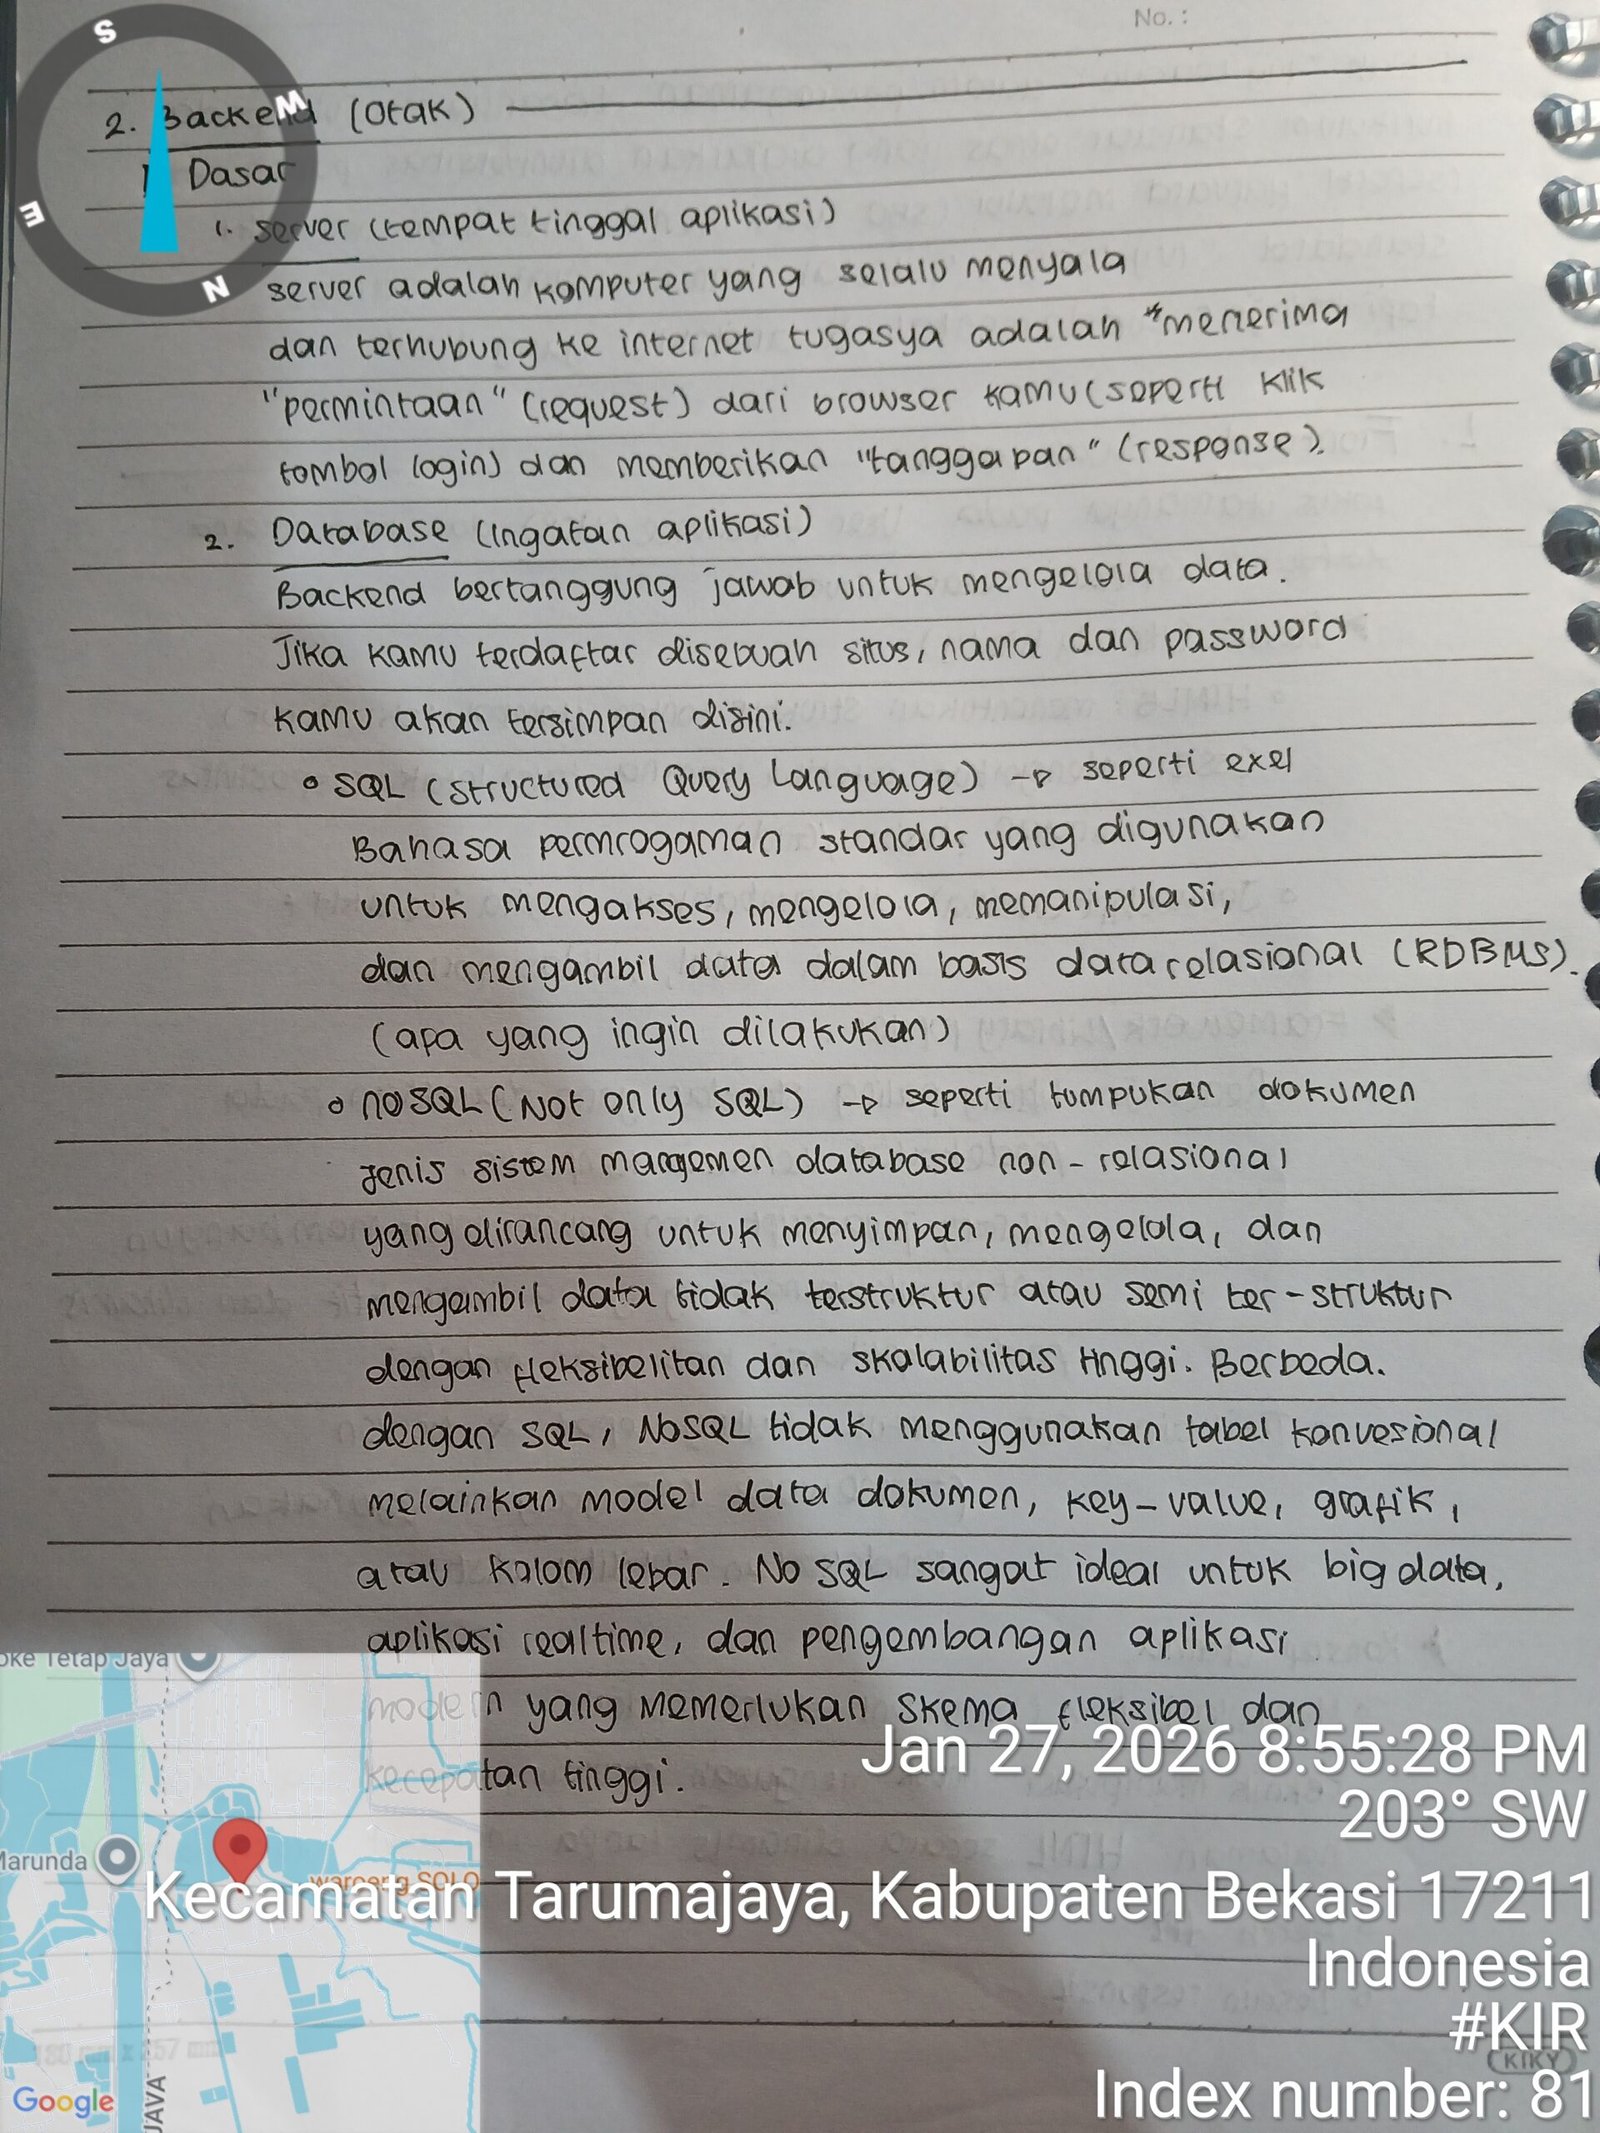 No. :
S
W
E
N
2. Backend (Otak)
Dasar
1. server (tempat tinggal aplikasi)
server adalah komputer yang selalu menyala
dan terhubung ke internet tugasya adalah "menerima
"permintaan" (request) dari browser kamu (seperti klik
tombol login) dan memberikan "tanggapan" (response).
2. Database (Ingatan aplikasi)
Backend bertanggung jawab untuk mengelola data.
Jika kamu terdaftar disebuah situs, nama dan password
kamu akan tersimpan disini.
SQL (Structured Query Language) → seperti exel
Bahasa permrogaman standar yang digunakan
untuk mengakses, mengelola, memanipulasi,
dan mengambil data dalam basis data relasional (RDBMS).
(apa yang ingin dilakukan)
noSQL (Not only SQL) → seperti tumpukan dokumen
Jenis sistem manajemen database non-relasional
yang dirancang untuk menyimpan, mengelola, dan
mengambil data tidak terstruktur atau semi ter-struktur
dengan fleksibelitan dan skalabilitas tinggi. Berbeda.
dengan SQL, NoSQL tidak menggunakan tabel konvesional
melainkan model data dokumen, key-value, grafik,
atau kolom lebar. No SQL sangat ideal untuk big data,
aplikasi realtime, dan pengembangan aplikasi
modern yang memerlukan skema fleksibel dan
kecepatan tinggi.
oke Tetap Jaya
Marunda
waroeng SOLO
JAVA
Google
Jan 27, 2026 8:55:28 PM
203° SW
Kecamatan Tarumajaya, Kabupaten Bekasi 17211
Indonesia
#KIR
KIKY
Index number: 81